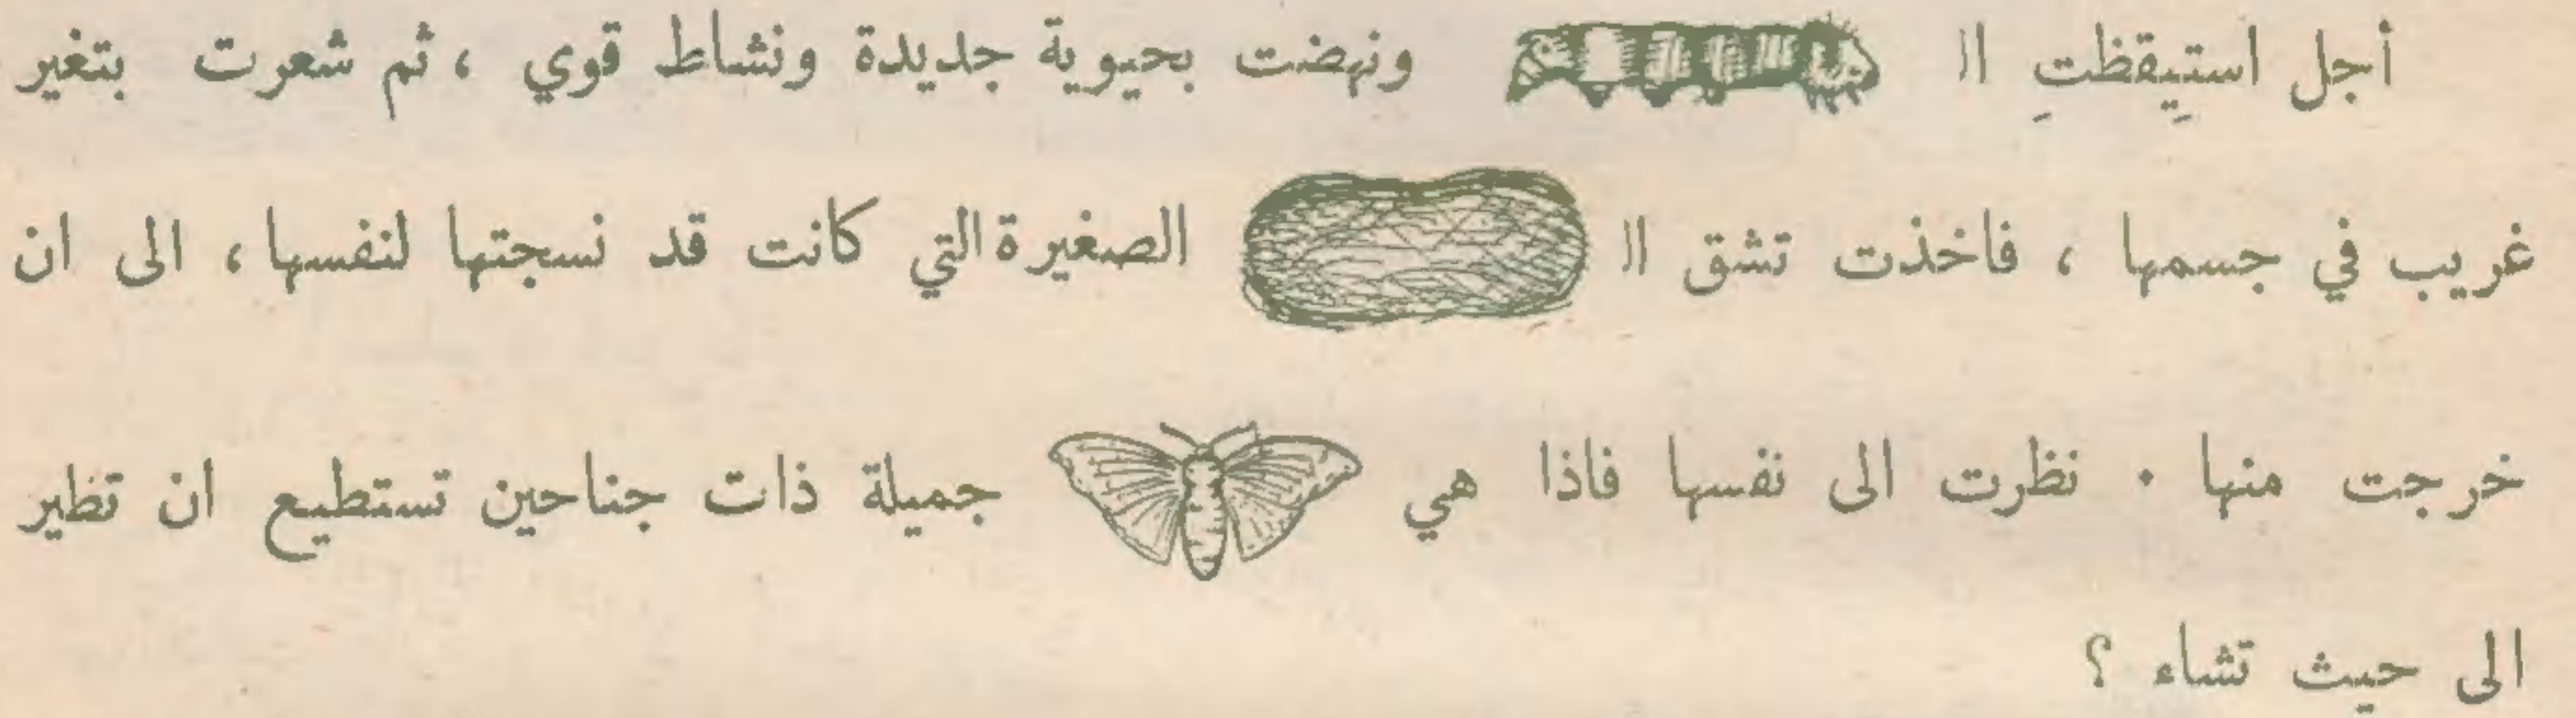 أجل استيقظتِ الـ ونهضت بحيوية جديدة ونشاط قوي ، ثم شعرت بتغير
غريب في جسمها ، فاخذت تشق الـ الصغيرة التي كانت قد نسجتها لنفسها ، الى ان
خرجت منها . نظرت الى نفسها فاذا هي جميلة ذات جناحين تستطيع ان تطير
الى حيث تشاء ؟